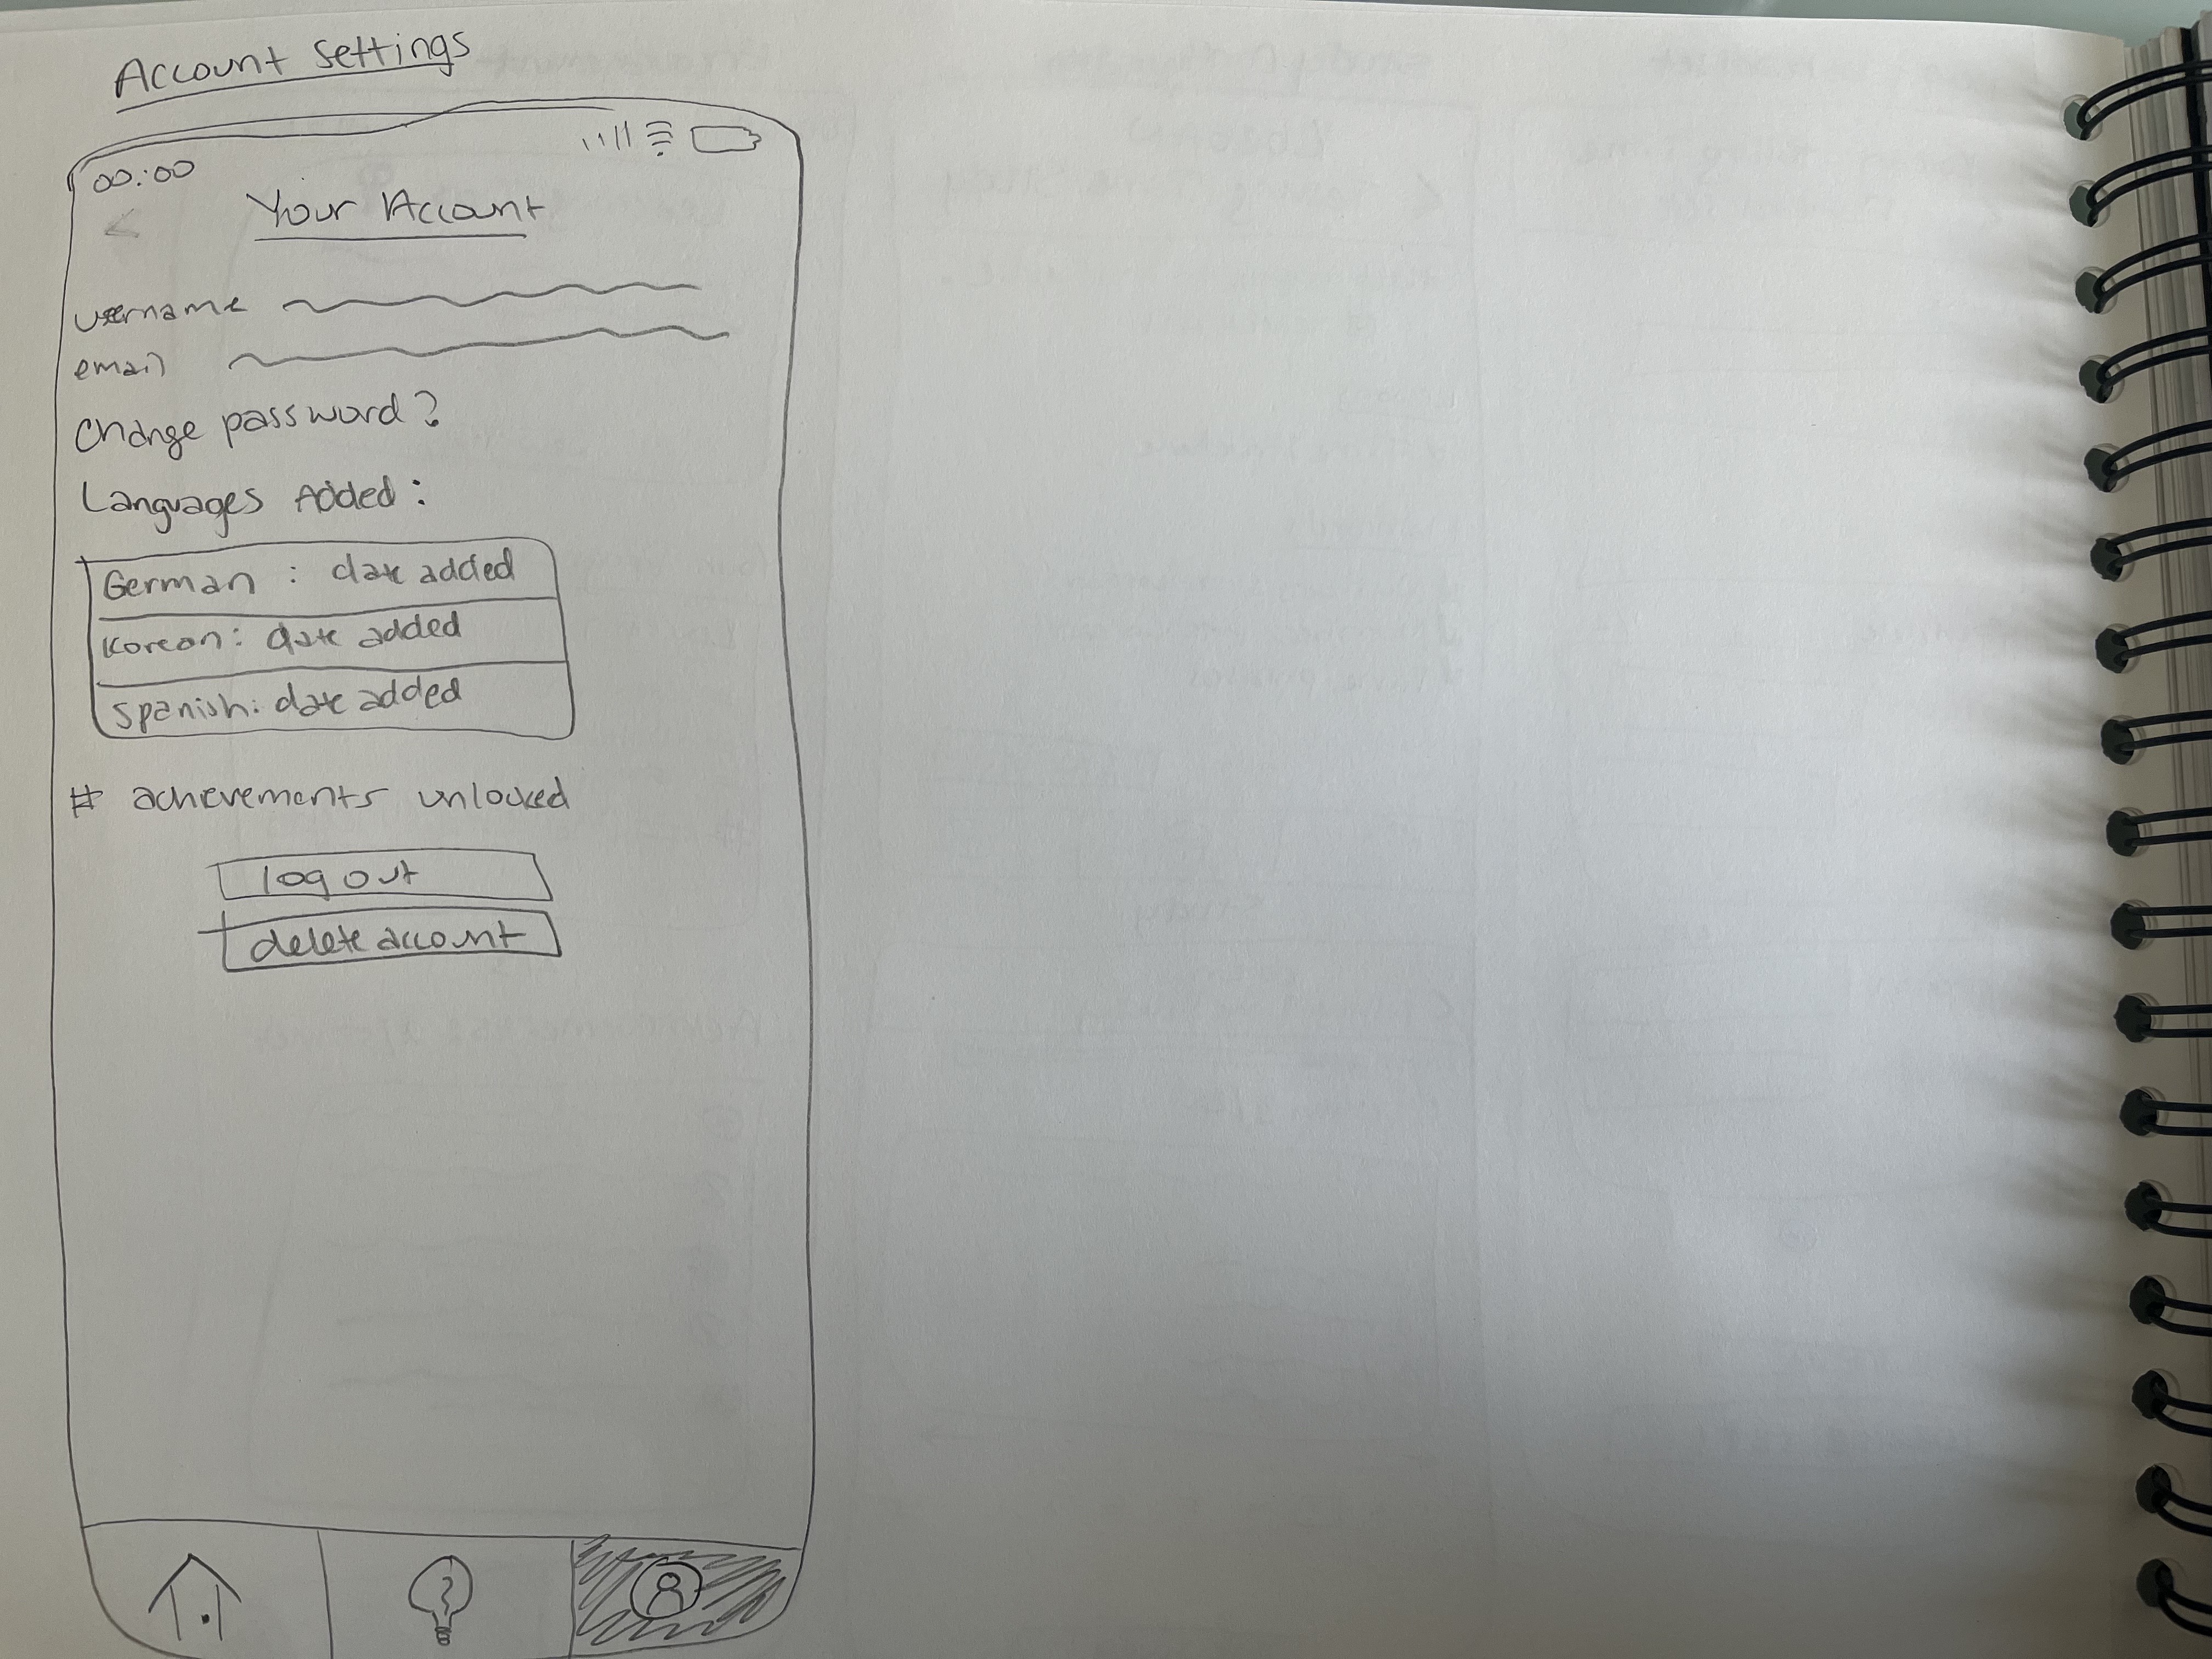 Account Settings
00:00
<
Your Account
username
email
Change password?
Languages Added:
German : date added
Korean: date added
Spanish: date added
# achievements unlocked
log out
delete account